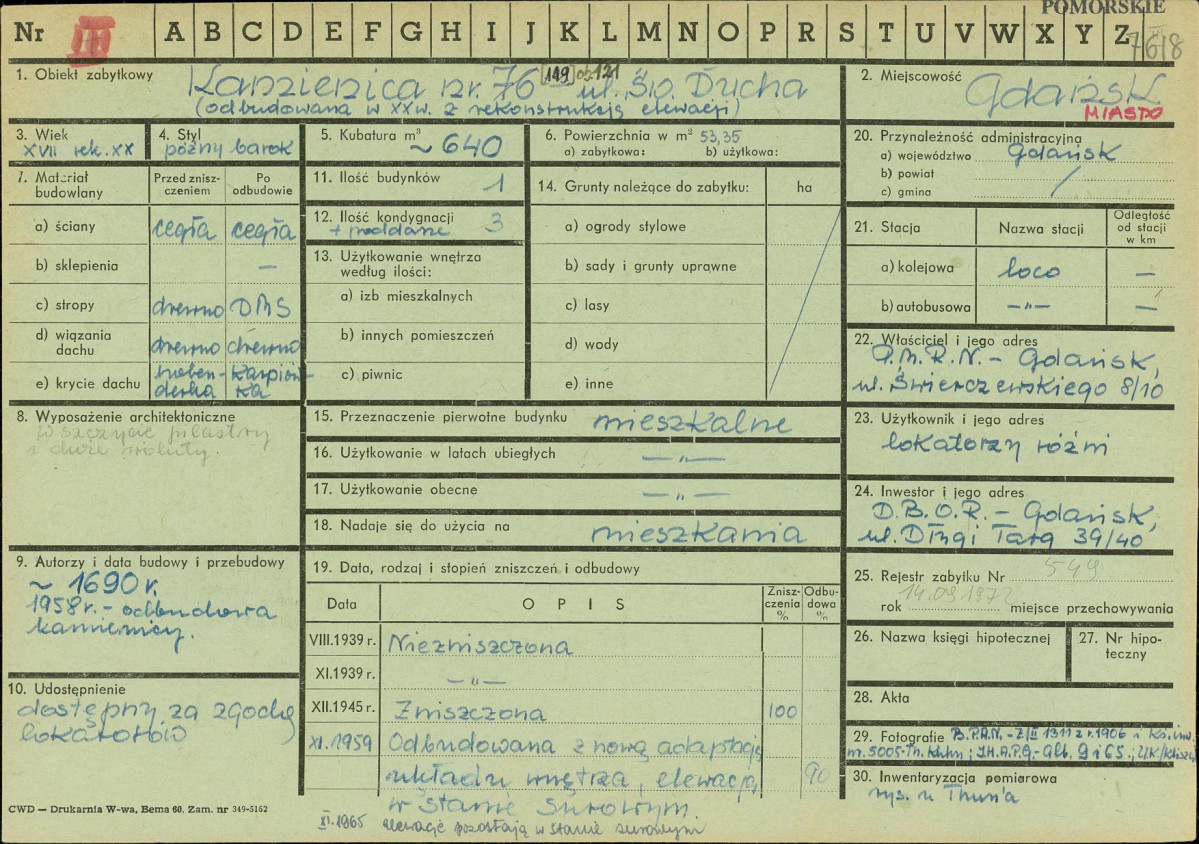 POMORSKIE
Nr III A B C D E F G H I J K L M N O P R S T U V W X Y Z
7618
1. Obiekt zabytkowy Kamienica nr. 76 [119] ob. 121 ul. Św. Ducha
(odbudowana w XX w. z rekonstrukcją elewacji)
2. Miejscowość Gdańsk
MIASTO
3. Wiek XVII rek. XX
4. Styl późny barok
5. Kubatura m³ ~ 640
6. Powierzchnia w m² 53,35
a) zabytkowa: b) użytkowa:
7. Materiał budowlany
Przed znisz-
czeniem
Po
odbudowie
a) ściany cegła cegła
b) sklepienia —
c) stropy drewno DMS
d) wiązania
dachu drewno drewno
e) krycie dachu holen-
derka karpiów-
ka
8. Wyposażenie architektoniczne
W szczycie pilastry
i duże woluty.
9. Autorzy i data budowy i przebudowy
~ 1690 r.
1958 r. - odbudowa
kamienicy.
10. Udostępnienie
dostępny za zgodą
lokatorów
CWD — Drukarnia W-wa, Bema 60. Zam. nr 349-5162
11. Ilość budynków 1
12. Ilość kondygnacji 3
+ poddasze
13. Użytkowanie wnętrza
według ilości:
a) izb mieszkalnych
b) innych pomieszczeń
c) piwnic
14. Grunty należące do zabytku: ha
a) ogrody stylowe
b) sady i grunty uprawne
c) lasy
d) wody
e) inne
15. Przeznaczenie pierwotne budynku mieszkalne
16. Użytkowanie w latach ubiegłych —„—
17. Użytkowanie obecne —„—
18. Nadaje się do użycia na mieszkania
19. Data, rodzaj i stopień zniszczeń i odbudowy
Data OPIS Znisz-
czenia
% Odbu-
dowa
%
VIII.1939 r. Niezniszczona
XI.1939 r. —„—
XII.1945 r. Zniszczona 100
XI.1959 Odbudowana z nową adaptacją
układu wnętrza, elewacja 90
w stanie surowym.
XI.1965 elewacje pozostają w stanie surowym
20. Przynależność administracyjna
a) województwo gdańsk
b) powiat
c) gmina
21. Stacja Nazwa stacji Odległość
od stacji
w km
a) kolejowa loco —
b) autobusowa —„— —
22. Właściciel i jego adres
P.M.R.N. - Gdańsk,
ul. Świerczewskiego 8/10
23. Użytkownik i jego adres
lokatorzy różni
24. Inwestor i jego adres
D.B.O.R. - Gdańsk,
ul. Długi Targ 39/40
25. Rejestr zabytku Nr 549
rok 14.09.1972 miejsce przechowywania
26. Nazwa księgi hipotecznej
27. Nr hipo-
teczny
28. Akta
29. Fotografie B.P.A.N. - Z/II 1311 z r. 1906 i Ks. inw.
m. 5005-Th. Kuhn; J.H.A.P.G.-Alb. 9 i 65.;
30. Inwentaryzacja pomiarowa
rys. u Thun'a